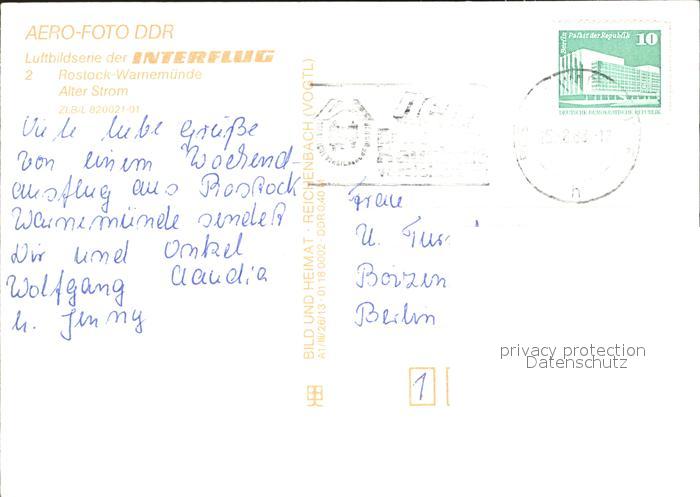 AERO-FOTO DDR
Luftbildserie der INTERFLUG
2 Rostock-Warnemünde
Alter Strom
ZLB/L 820021-01
Viele liebe Grüße
von einem Wochend-
ausflug aus Rostock
Warnemünde sendet
Dir und Onkel
Wolfgang Claudia
u. Jenny
BILD UND HEIMAT · REICHENBACH (VOGTL)
A1/III/26/13 01 18 0002
Berlin Palast der Republik
10
DEUTSCHE DEMOKRATISCHE REPUBLIK
h
Frau
U.
Berlin
privacy protection
Datenschutz
1